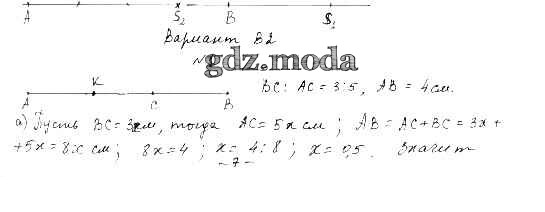 A S₂ B S₁
Вариант В2
№
gdz.moda
K
BC : AC = 3:5, AB = 4 см.
A C B
а) Пусть BC = 3x см, тогда AC = 5x см; AB = AC + BC = 3x +
+5x = 8x см; 8x = 4; x = 4:8; x = 0,5. Значит
- 7 -